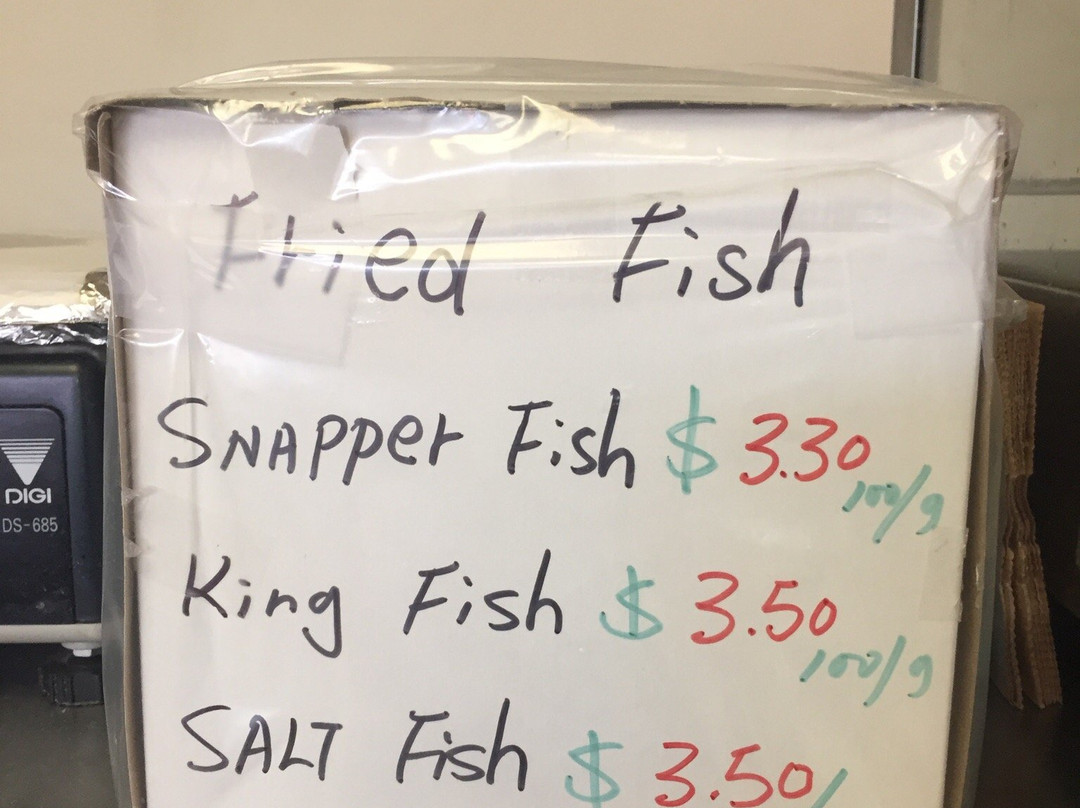 Fried Fish
SNAPPer Fish $ 3.30
100/g
King Fish $ 3.50
100/g
SALT Fish $ 3.50/
DIGI
DS-685